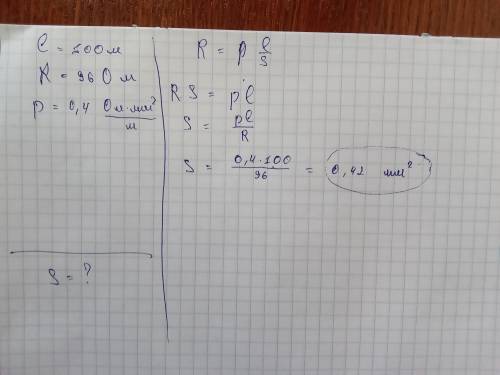 ℓ = 100 м
R = 96 Ом
ρ = 0,4 Ом·мм²/м
S = ?
R = ρ ℓ/S
R S = ρℓ
S = ρℓ/R
S = 0,4·100/96 = 0,42 мм²